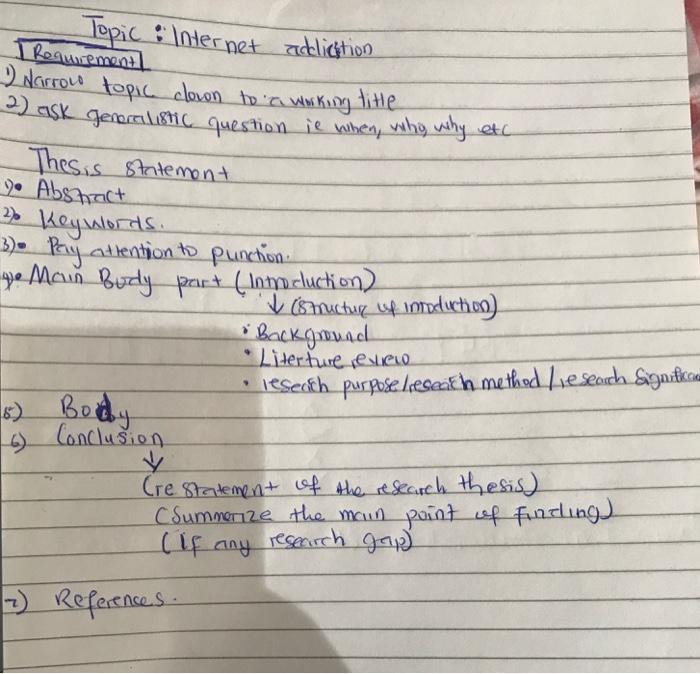 Topic : Internet addiction
Requirement
1) Narrow topic down to a working title
2) ask generalistic question ie when, who, why etc
Thesis statement
1) • Abstract
2) • Keywords.
3) • Pay attention to punction.
4) • Main Body part (Introduction)
↓ (structure of inroduction)
• Background
• Literture review
• reseach purpose/reseach method / research Significan
5) Body
6) Conclusion
↓
(re statement of the research thesis)
(Summerize the main point of finding)
(if any research gap)
7) References.